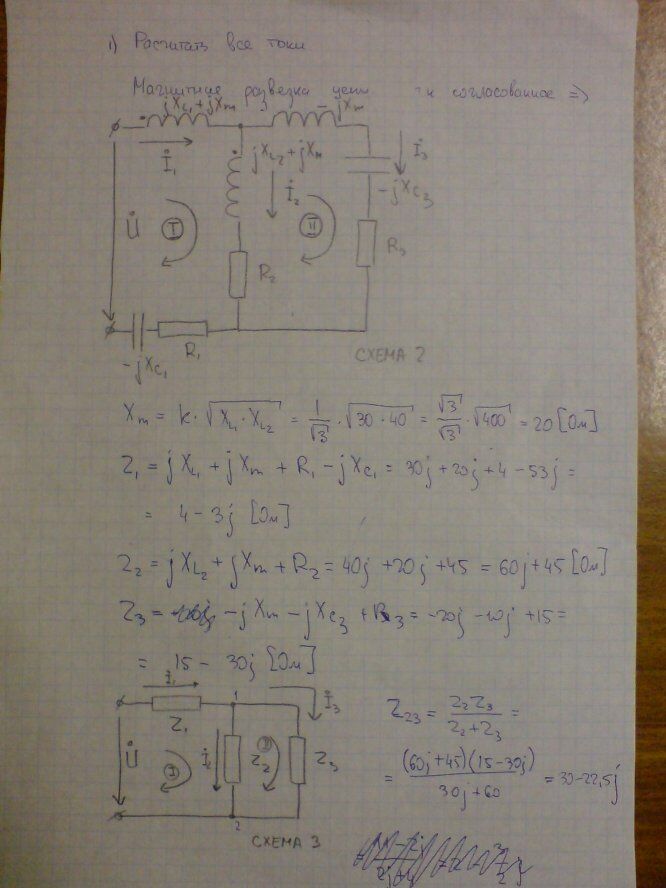 1) Расчитать все токи
Магнитная развезка цепи тк согласованное =>
jX_{L1} + jX_m
-jX_m
İ_1
jX_{L2} + jX_m
İ_2
İ_3
-jX_{C3}
U̇
I
II
R_2
R_3
-jX_{C1}
R_1
СХЕМА 2
X_m = k·√(X_{L1}·X_{L2}) = 1/√3 · √(30·40) = √3/√3 · √400 = 20 [Ом]
Z_1 = jX_{L1} + jX_m + R_1 - jX_{C1} = 30j + 20j + 4 - 53j =
= 4 - 3j [Ом]
Z_2 = jX_{L2} + jX_m + R_2 = 40j + 20j + 45 = 60j + 45 [Ом]
Z_3 = -jX_m - jX_{C3} + R_3 = -20j - 10j + 15 =
= 15 - 30j [Ом]
İ_1
Z_1
1
İ_3
U̇
I
İ_2
Z_2
II
Z_3
2
СХЕМА 3
Z_{23} = Z_2 Z_3 / (Z_2 + Z_3) =
= (60j+45)(15-30j) / (30j+60) = 30-22,5j